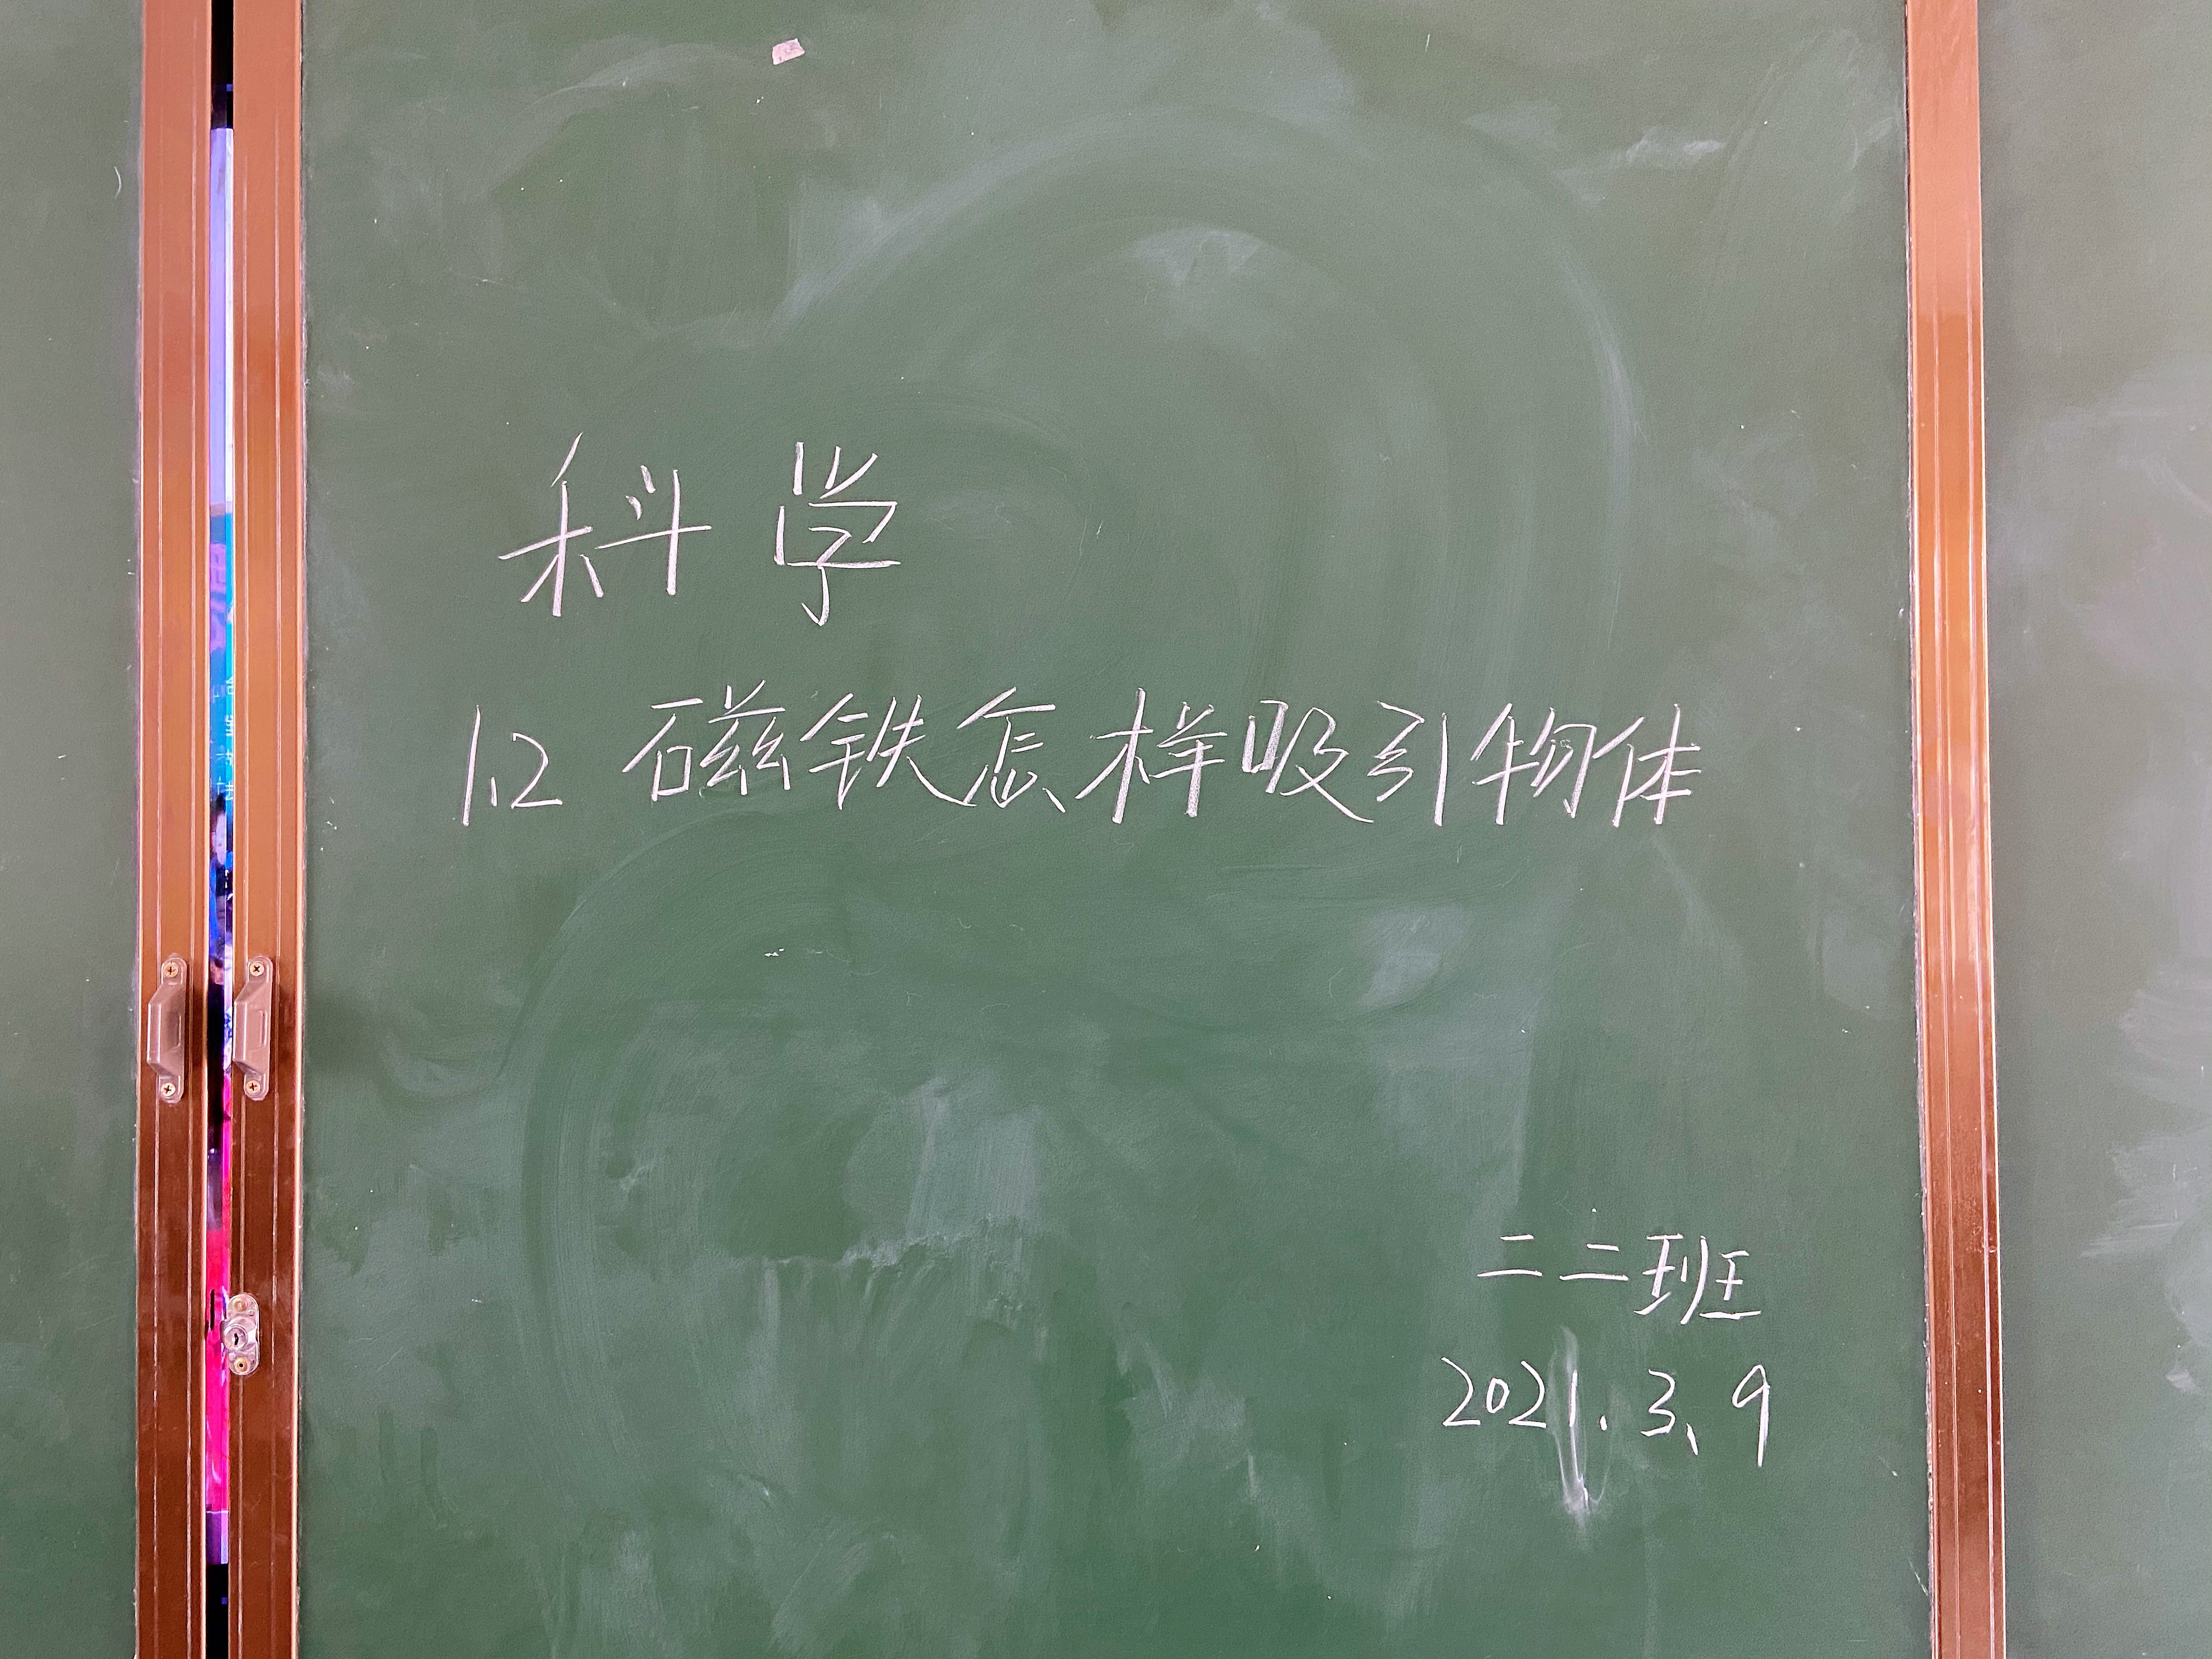 科学
1.2 磁铁怎样吸引物体
二二班
2021.3、9